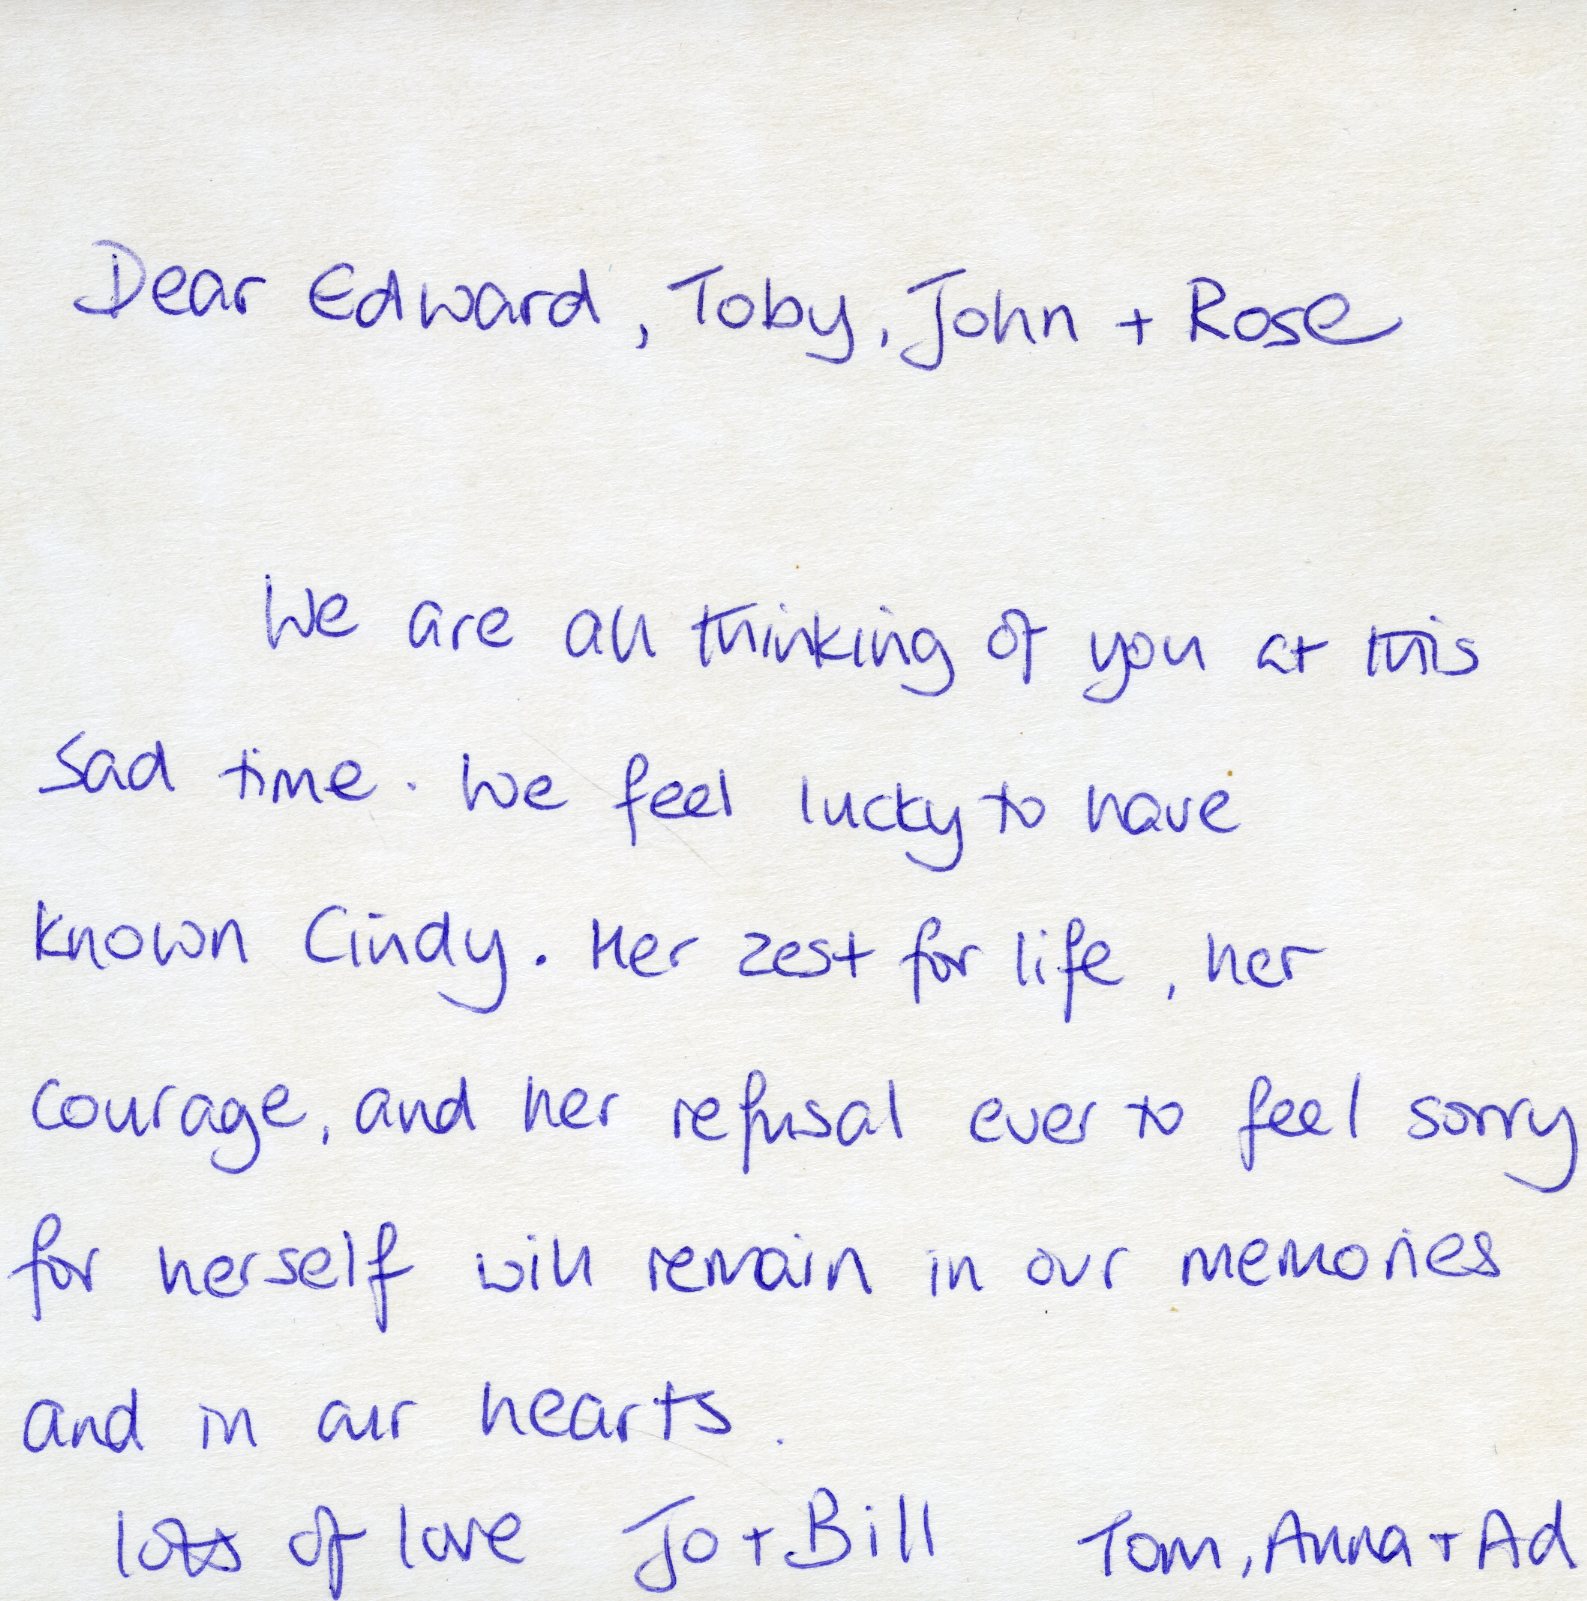 Dear Edward, Toby, John + Rose
We are all thinking of you at this
sad time. We feel lucky to have
known Cindy. Her zest for life, her
courage, and her refusal ever to feel sorry
for herself will remain in our memories
and in our hearts.
lots of love Jo + Bill Tom, Anna + Ad